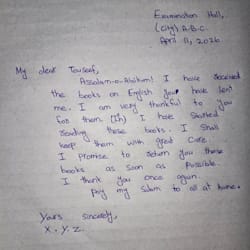 Examination Hall,
(City) A.B.C.
April 11, 2026
My dear Touseef,
Assalam-o-Alaikum! I have received
the books on English you have lent
me. I am very thankful to you
for them. I have started
reading these books. I shall
keep them with great care.
I promise to return you these
books as soon as possible.
I thank you once again.
Pay my salam to all at home.
Yours sincerely,
X.Y.Z.